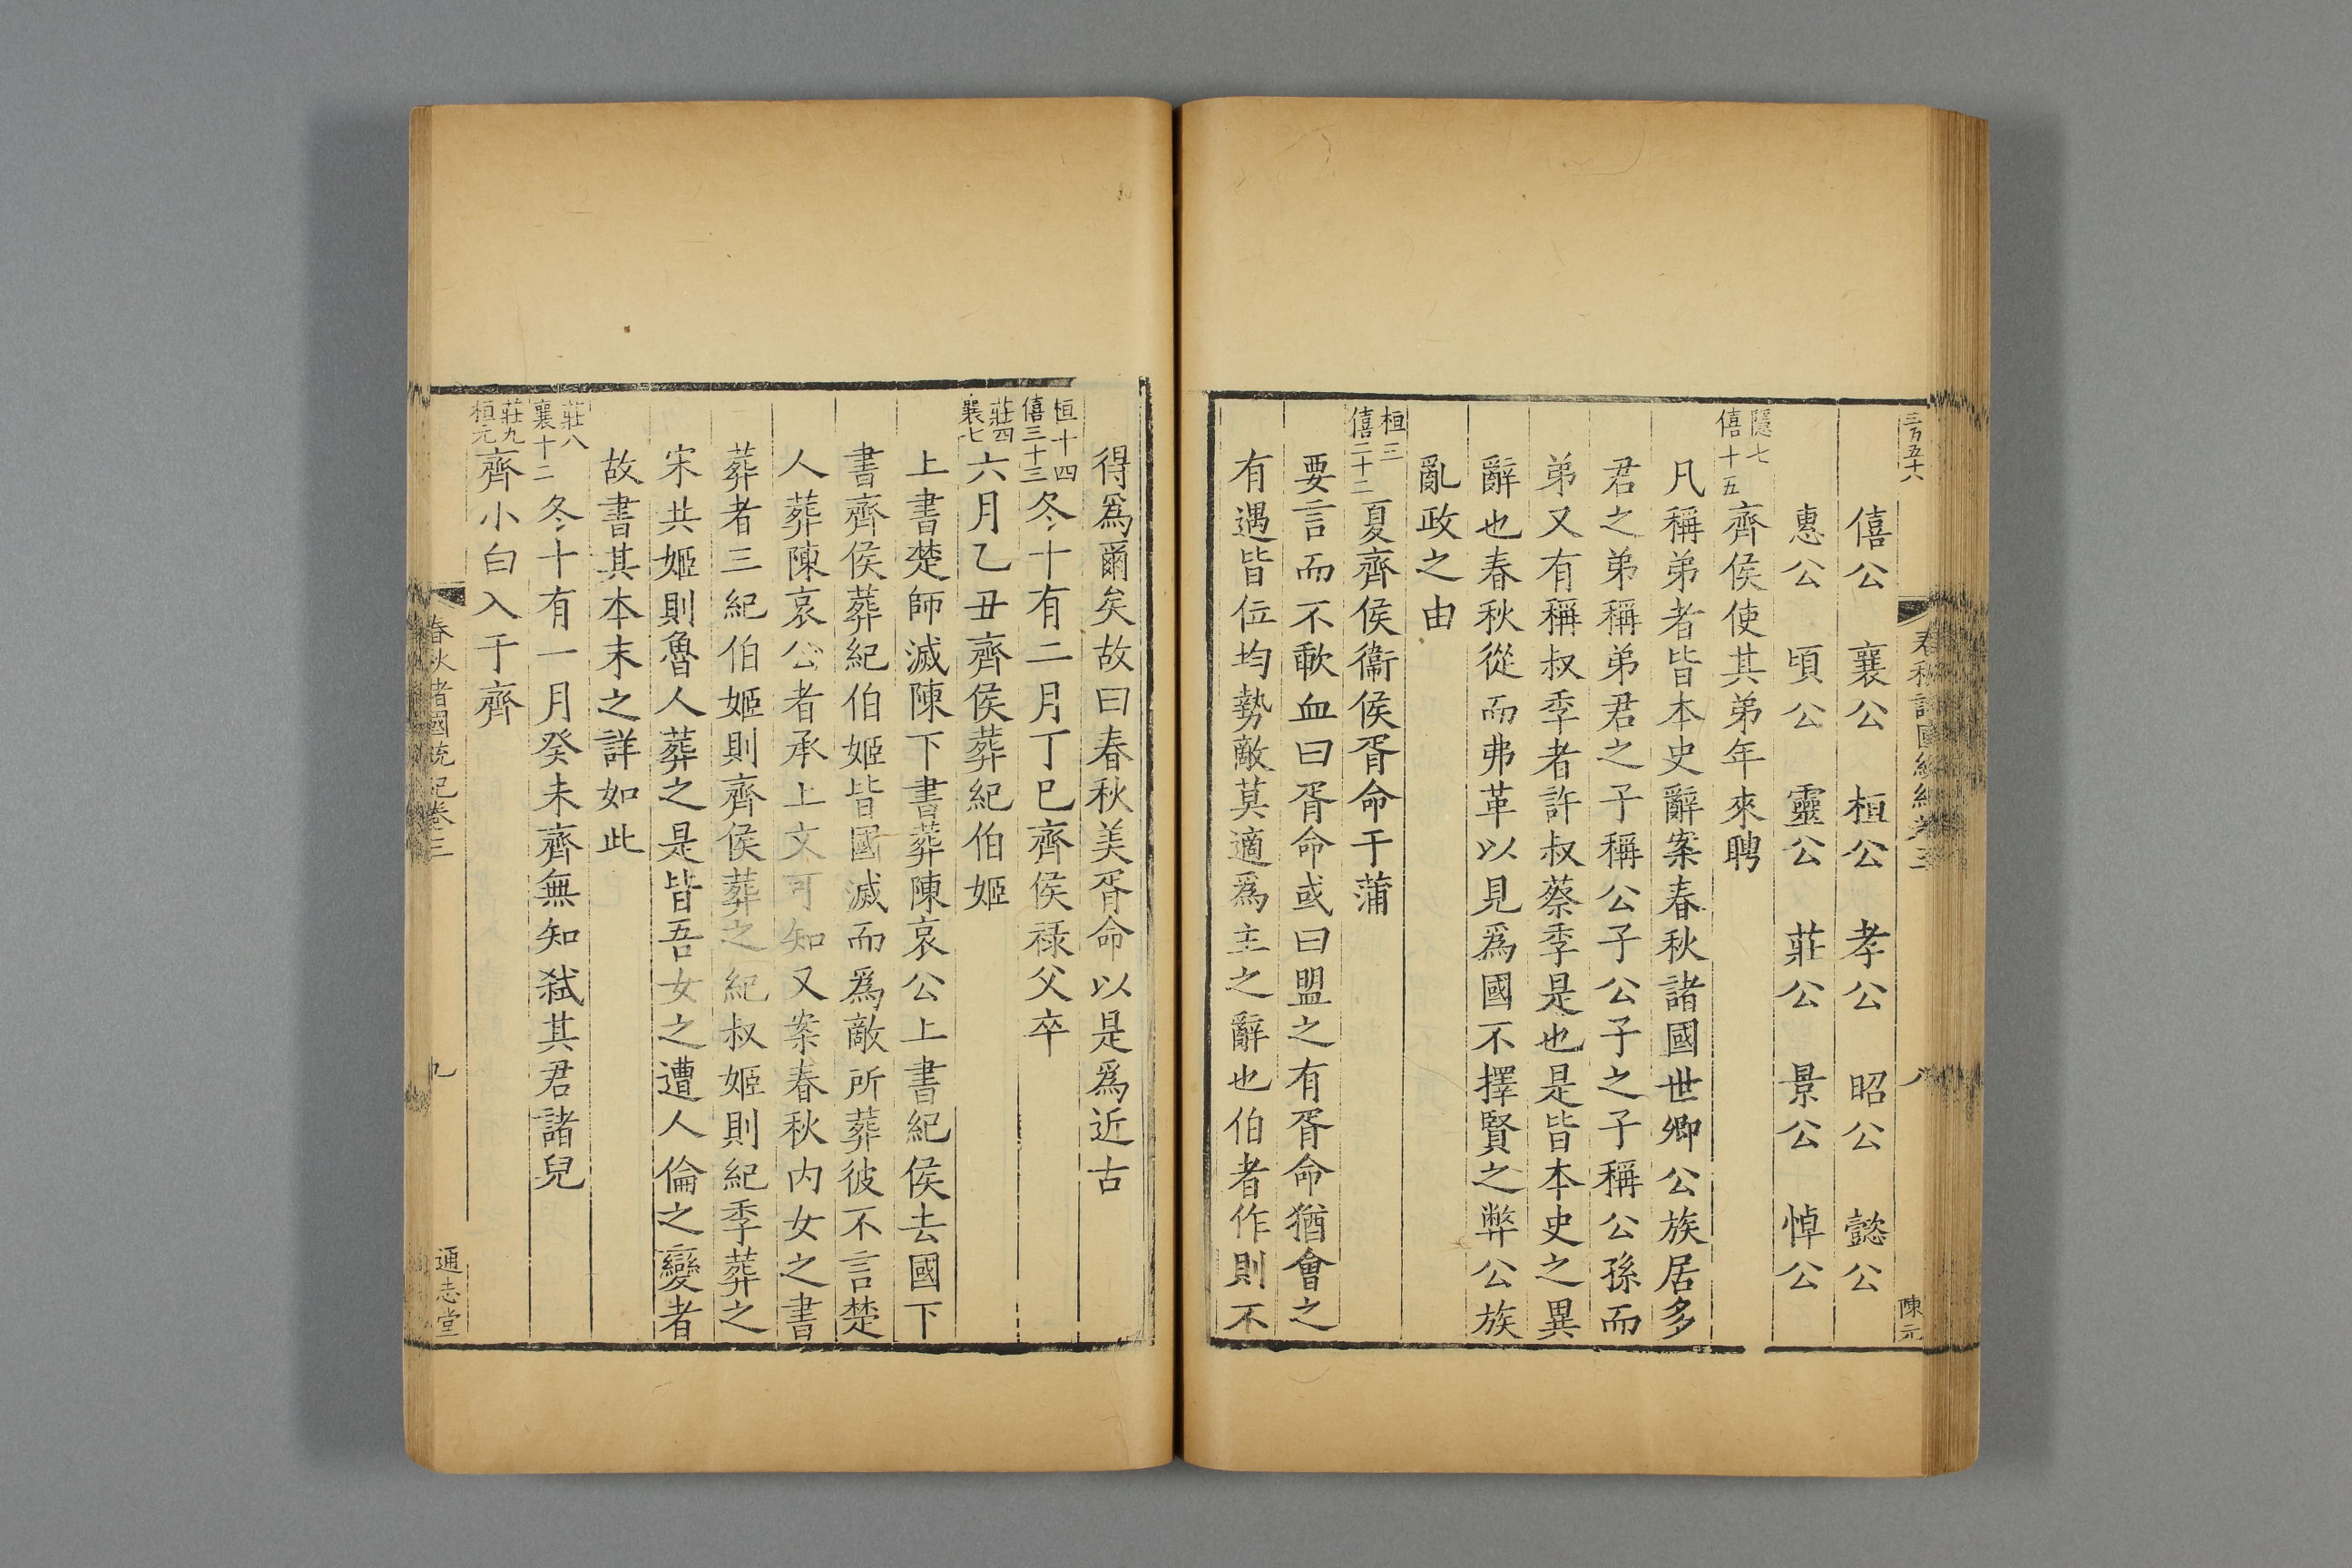 三百五十六
春秋諸國統紀卷三
八
陳元
僖公 襄公 桓公 孝公 昭公 懿公
惠公 頃公 靈公 莊公 景公 悼公
隱七
僖十五
齊侯使其弟年來聘
凡稱弟者皆本史辭案春秋諸國世卿公族居多
君之弟稱弟君之子稱公子公子之子稱公孫而
弟又有稱叔季者許叔蔡季是也是皆本史之異
辭也春秋從而弗革以見爲國不擇賢之弊公族
亂政之由
桓三
僖二十二
夏齊侯衞侯胥命于蒲
要言而不歃血曰胥命或曰盟之有胥命猶會之
有遇皆位均勢敵莫適爲主之辭也伯者作則不
得爲爾矣故曰春秋美胥命以是爲近古
桓十四
僖三十三
冬十有二月丁巳齊侯祿父卒
莊四
襄七
六月乙丑齊侯葬紀伯姬
上書楚師滅陳下書葬陳哀公上書紀侯去國下
書齊侯葬紀伯姬皆國滅而爲敵所葬彼不言楚
人葬陳哀公者承上文可知又案春秋内女之書
葬者三紀伯姬則齊侯葬之紀叔姬則紀季葬之
宋共姬則魯人葬之是皆吾女之遭人倫之變者
故書其本末之詳如此
莊八
襄十二
冬十有一月癸未齊無知弑其君諸兒
莊九
桓元
齊小白入于齊
春秋諸國統紀卷三
九
通志堂